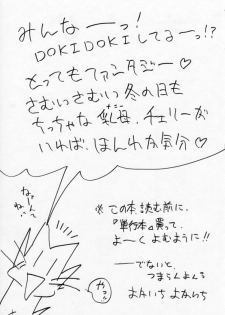 みんなーっ!
DOKIDOKIしてるーっ!?
とってもファンタジー♡
さむいさむい冬の日も
ちっちゃな乳母、チェリーが
いれば、ほんわか気分♡
なーんてね
※この本、読む前に、
『単行本』買って
よ〜くよむように!!
──でないと、
つまらんよんち
よかいち よかいち
やっ